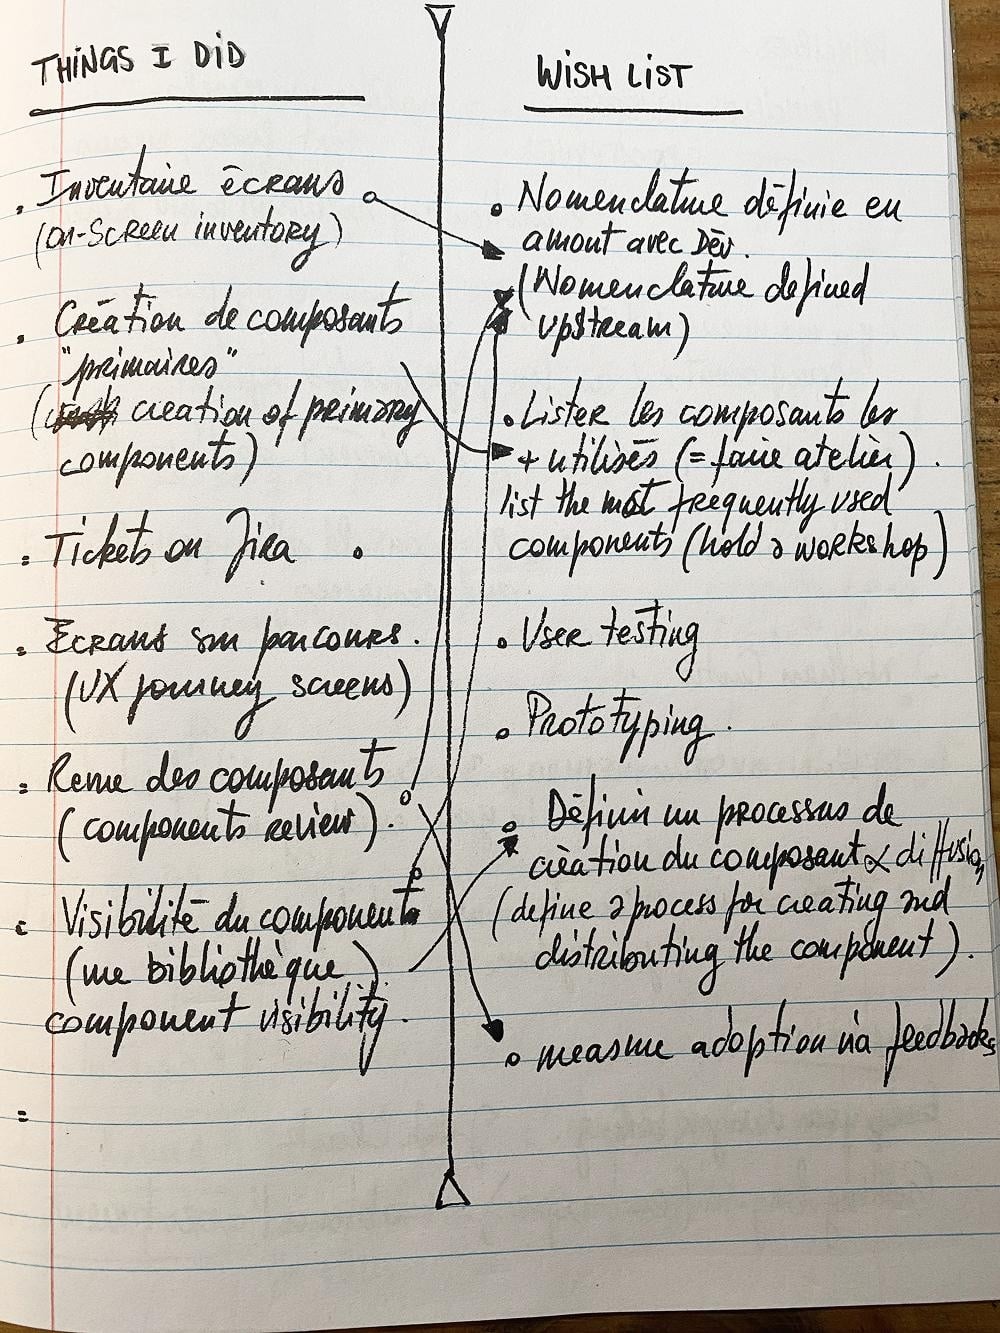 THINGS I DID
Inventaire écrans
(on-Screen inventory)
Création de composants
"primaires"
( creation of primary
components)
Tickets on Jira
Écrans sur parcours.
(UX journey screens)
Revue des composants
(components review).
Visibilité du components
(une bibliothèque)
component visibility.
WISH LIST
Nomenclature définie en
amont avec Dév.
(Nomenclature defined
upstream)
Lister les composants les
+ utilisés (= faire atelier).
list the most frequently used
components (hold a workshop)
User testing
Prototyping.
Définir un processus de
création du composant & diffusion
(define a process for creating and
distributing the component).
measure adoption via feedbacks